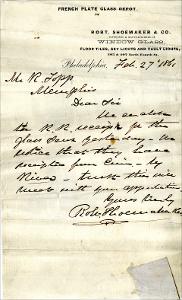 FRENCH PLATE GLASS DEPOT.
ROBT. SHOEMAKER & CO.
WINDOW GLASS,
FLOOR TILES, SKY LIGHTS AND VAULT LIGHTS,
Philadelphia, Feb. 27 1861
Mr R. Topp
Memphis
Dear Sir
We enclose
the R.R. receipt for the
glass sent yesterday – we
notice that they have
receipted from Cin. – by
River – trust this will
meet with your approbation
Yours truly
Robt Shoemaker & Co